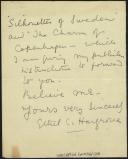 "Silhouettes of Sweden"
and "The Charm of
Copenhagen" – which
I am giving my publisher
instructions to forward
to you.
Believe me –
Yours very sincerely
Ethel C. Hargrove